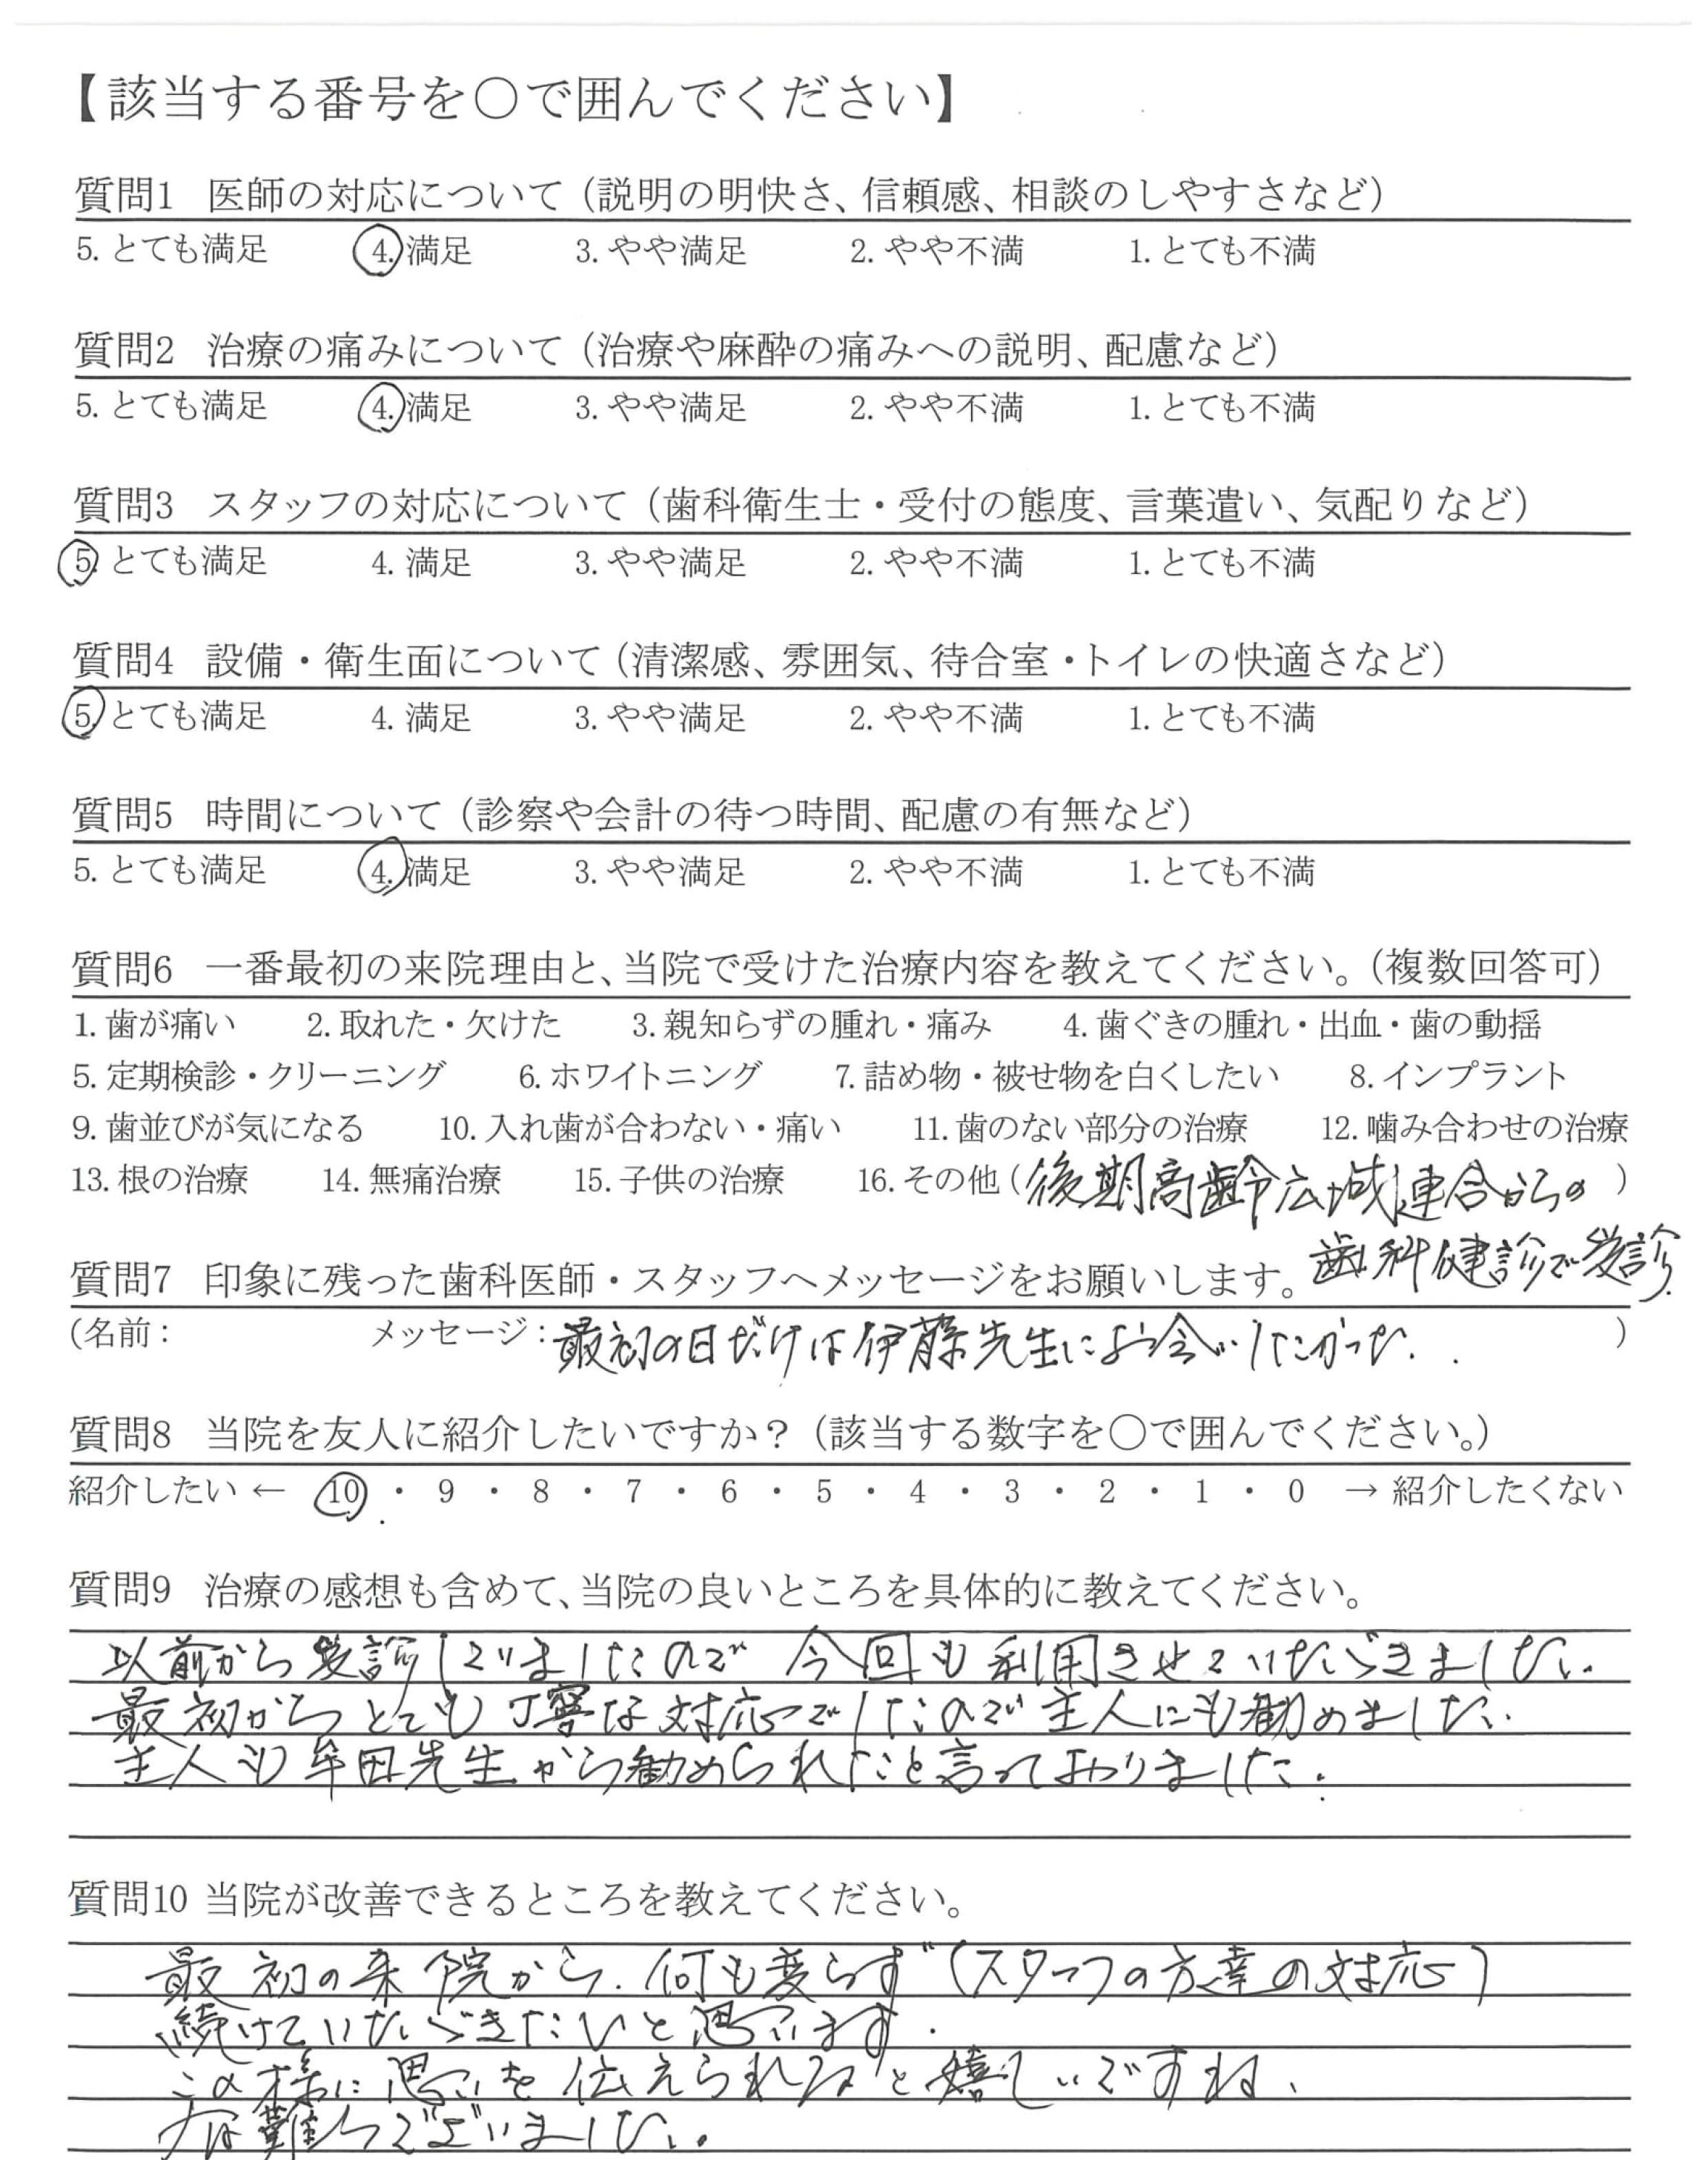 【該当する番号を○で囲んでください】
質問1 医師の対応について（説明の明快さ、信頼感、相談のしやすさなど）
5. とても満足 4. 満足 3. やや満足 2. やや不満 1. とても不満
質問2 治療の痛みについて（治療や麻酔の痛みへの説明、配慮など）
5. とても満足 4. 満足 3. やや満足 2. やや不満 1. とても不満
質問3 スタッフの対応について（歯科衛生士・受付の態度、言葉遣い、気配りなど）
5. とても満足 4. 満足 3. やや満足 2. やや不満 1. とても不満
質問4 設備・衛生面について（清潔感、雰囲気、待合室・トイレの快適さなど）
5. とても満足 4. 満足 3. やや満足 2. やや不満 1. とても不満
質問5 時間について（診察や会計の待つ時間、配慮の有無など）
5. とても満足 4. 満足 3. やや満足 2. やや不満 1. とても不満
質問6 一番最初の来院理由と、当院で受けた治療内容を教えてください。（複数回答可）
1. 歯が痛い 2. 取れた・欠けた 3. 親知らずの腫れ・痛み 4. 歯ぐきの腫れ・出血・歯の動揺
5. 定期検診・クリーニング 6. ホワイトニング 7. 詰め物・被せ物を白くしたい 8. インプラント
9. 歯並びが気になる 10. 入れ歯が合わない・痛い 11. 歯のない部分の治療 12. 噛み合わせの治療
13. 根の治療 14. 無痛治療 15. 子供の治療 16. その他（後期高齢広域連合からの）
歯科健診で受診.
質問7 印象に残った歯科医師・スタッフへメッセージをお願いします。
（名前： メッセージ：最初の日だけは伊藤先生にお会いしたかった。）
質問8 当院を友人に紹介したいですか？（該当する数字を○で囲んでください。）
紹介したい ← 10 ・ 9 ・ 8 ・ 7 ・ 6 ・ 5 ・ 4 ・ 3 ・ 2 ・ 1 ・ 0 → 紹介したくない
質問9 治療の感想も含めて、当院の良いところを具体的に教えてください。
以前から受診していましたので 今回も利用させていただきました。
最初からとても丁寧な対応でしたので主人にも勧めました。
主人も牟田先生から勧められたと言っておりました。
質問10 当院が改善できるところを教えてください。
最初の来院から. 何も変らず（スタッフの方達の対応）
続けていただきたいと思います.
この様に思いを伝えられると嬉しいですね、
有難うございました。